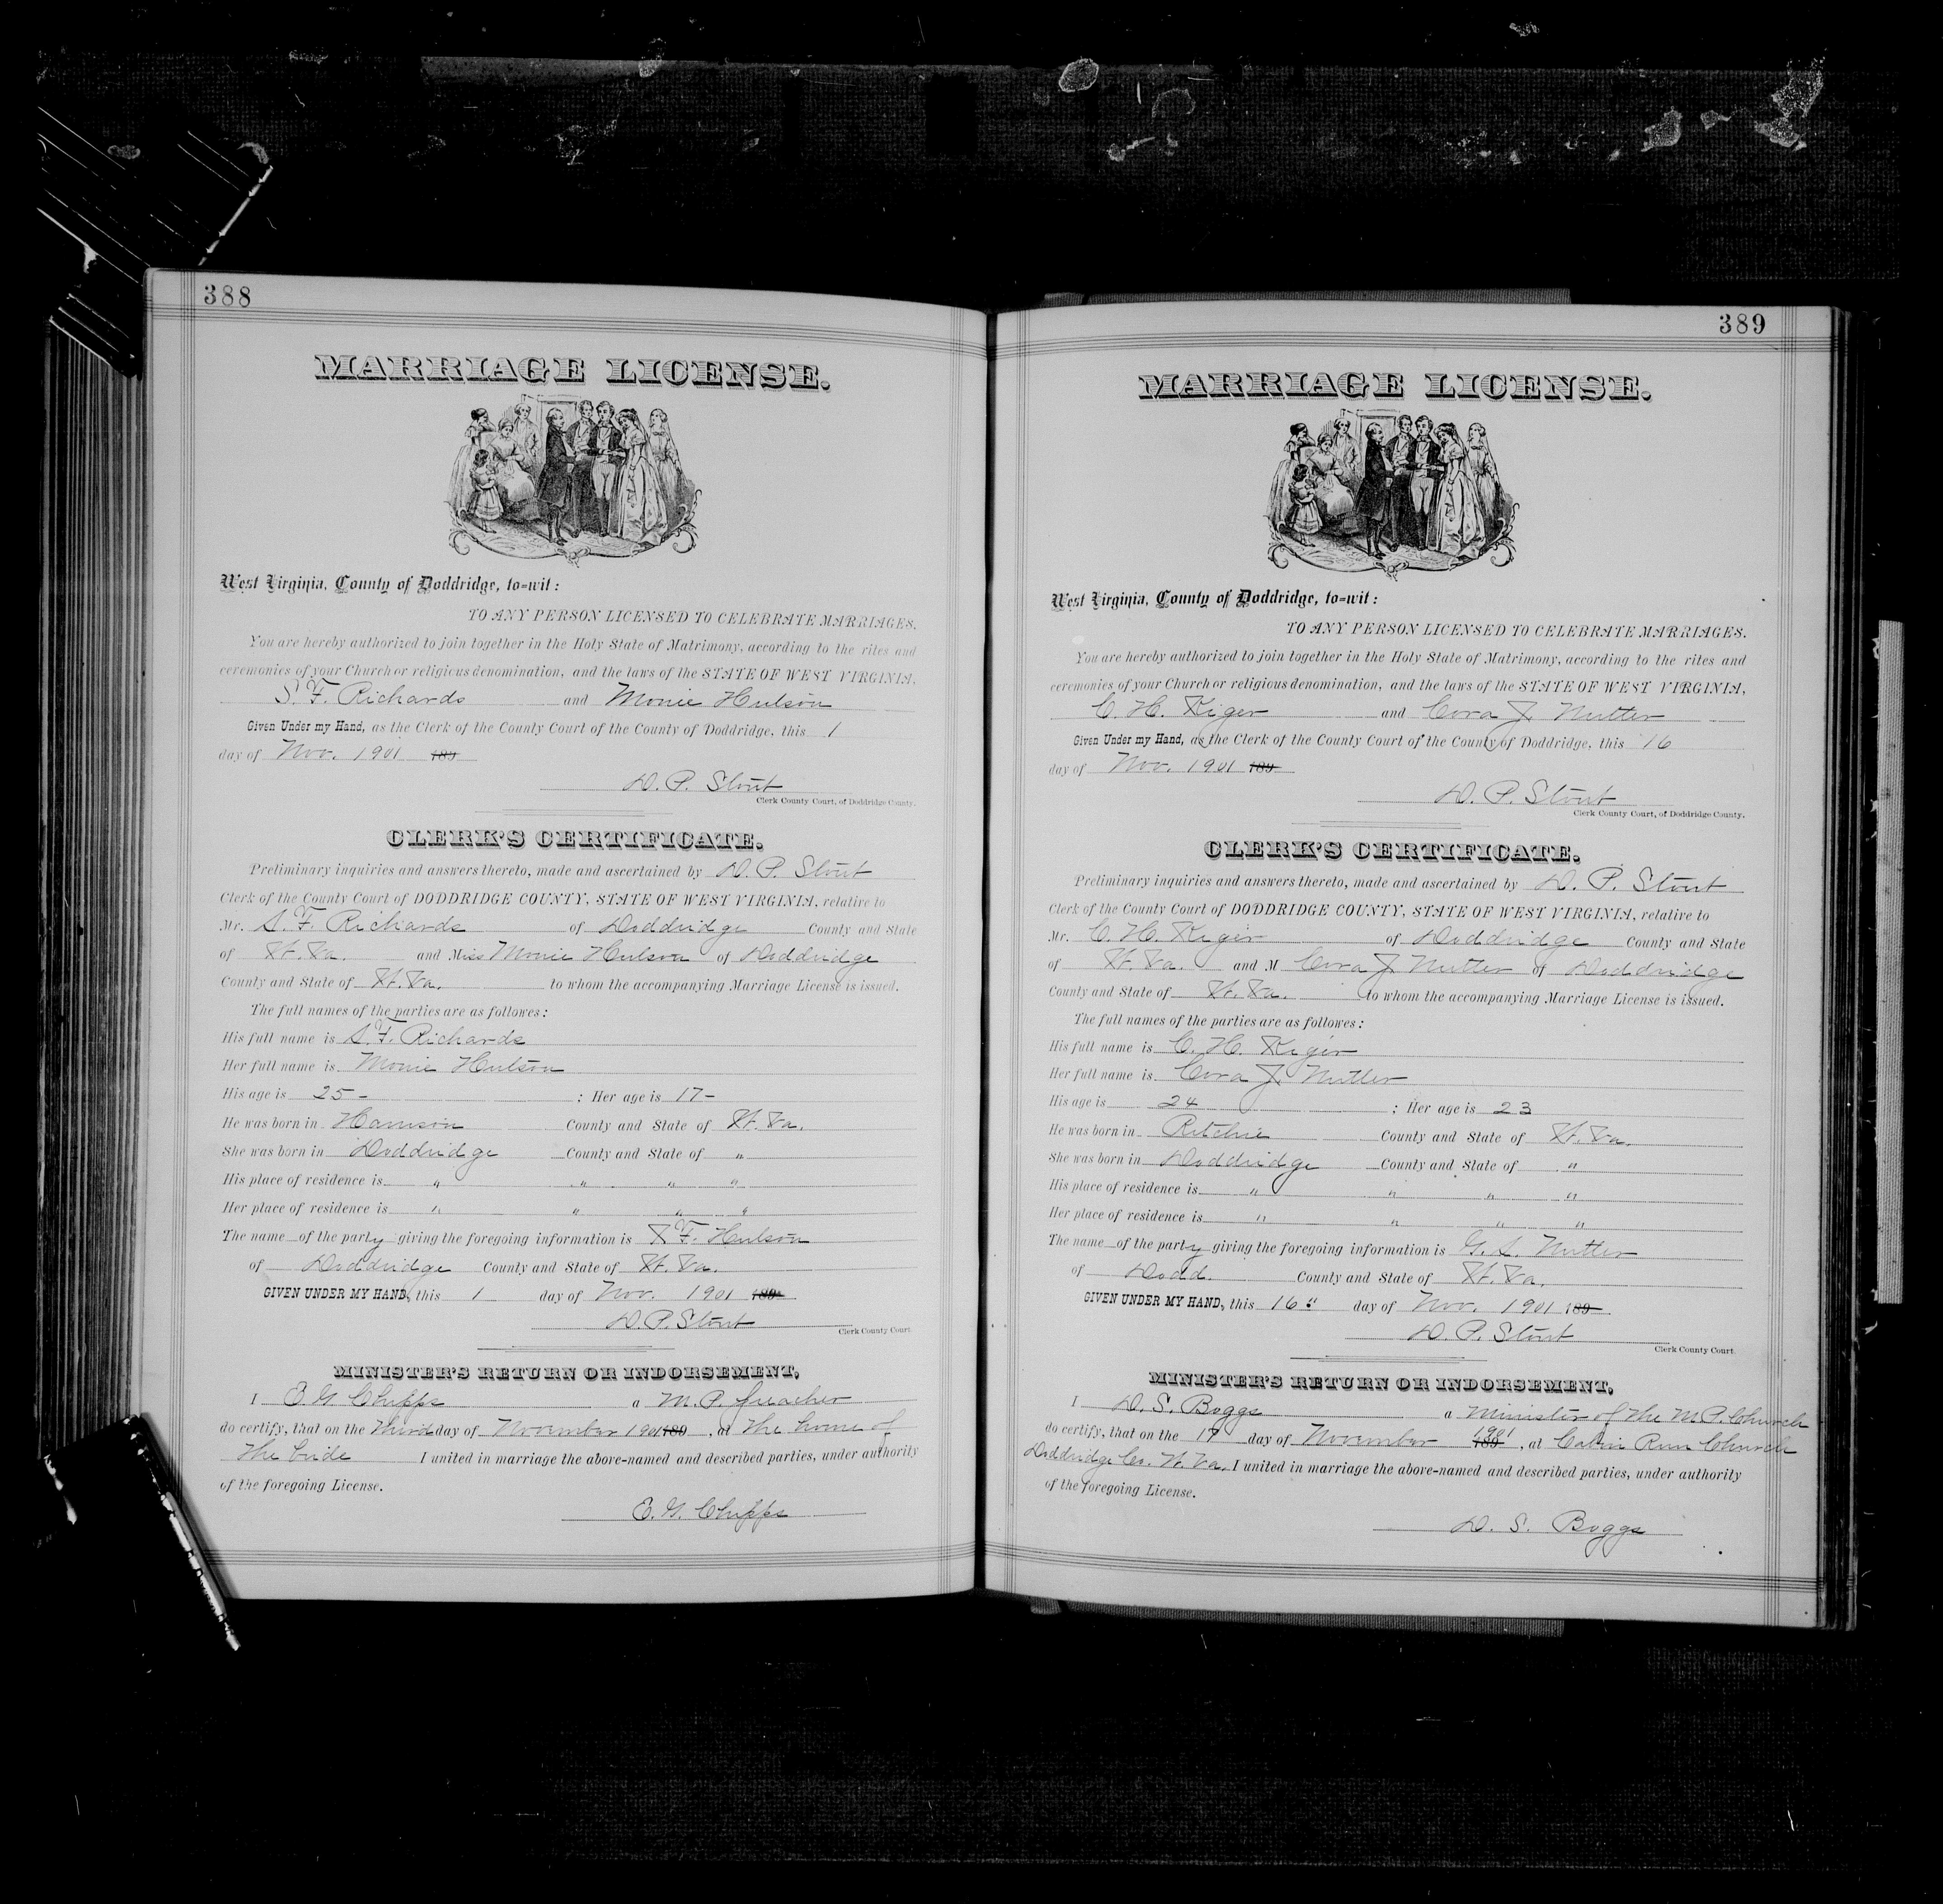 388
MARRIAGE LICENSE.
West Virginia, County of Doddridge, to=wit:
TO ANY PERSON LICENSED TO CELEBRATE MARRIAGES.
You are hereby authorized to join together in the Holy State of Matrimony, according to the rites and
ceremonies of your Church or religious denomination, and the laws of the STATE OF WEST VIRGINIA,
S. F. Richards and Monie Hulson
Given Under my Hand, as the Clerk of the County Court of the County of Doddridge, this 1
day of Nov. 1901 189
D. P. Stout
Clerk County Court, of Doddridge County.
CLERK'S CERTIFICATE.
Preliminary inquiries and answers thereto, made and ascertained by D. P. Stout
Clerk of the County Court of DODDRIDGE COUNTY, STATE OF WEST VIRGINIA, relative to
Mr. S. F. Richards of Doddridge County and State
of W. Va. and Miss Monie Hulson of Doddridge
County and State of W. Va. to whom the accompanying Marriage License is issued.
The full names of the parties are as followes:
His full name is S. F. Richards
Her full name is Monie Hulson
His age is 25 - ; Her age is 17 -
He was born in Harrison County and State of W. Va.
She was born in Doddridge County and State of "
His place of residence is " " " "
Her place of residence is " " " "
The name of the party giving the foregoing information is F. Hulson
of Doddridge County and State of W. Va.
GIVEN UNDER MY HAND, this 1 day of Nov. 1901 189
D. P. Stout
Clerk County Court.
MINISTER'S RETURN OR INDORSEMENT,
I E. G. Chipps a M. P. preacher
do certify, that on the Third day of November 1901 189 , at the home of
the bride I united in marriage the above-named and described parties, under authority
of the foregoing License.
E. G. Chipps
389
MARRIAGE LICENSE.
West Virginia, County of Doddridge, to=wit:
TO ANY PERSON LICENSED TO CELEBRATE MARRIAGES.
You are hereby authorized to join together in the Holy State of Matrimony, according to the rites and
ceremonies of your Church or religious denomination, and the laws of the STATE OF WEST VIRGINIA,
C. H. Kiger and Cora J. Nutter
Given Under my Hand, as the Clerk of the County Court of the County of Doddridge, this 16
day of Nov. 1901 189
D. P. Stout
Clerk County Court, of Doddridge County.
CLERK'S CERTIFICATE.
Preliminary inquiries and answers thereto, made and ascertained by D. P. Stout
Clerk of the County Court of DODDRIDGE COUNTY, STATE OF WEST VIRGINIA, relative to
Mr. C. H. Kiger of Doddridge County and State
of W. Va. and M Cora J. Nutter of Doddridge
County and State of W. Va. to whom the accompanying Marriage License is issued.
The full names of the parties are as followes:
His full name is C. H. Kiger
Her full name is Cora J. Nutter
His age is 24 ; Her age is 23
He was born in Ritchie County and State of W. Va.
She was born in Doddridge County and State of "
His place of residence is " " " "
Her place of residence is " " " "
The name of the party giving the foregoing information is G. S. Nutter
of Dodd. County and State of W. Va.
GIVEN UNDER MY HAND, this 16" day of Nov. 1901 189
D. P. Stout
Clerk County Court.
MINISTER'S RETURN OR INDORSEMENT,
I D. S. Boggs a Minister of the M. P. Church
do certify, that on the 17 day of November 1901 189 , at Cabin Run Church
Doddridge Co. W. Va. I united in marriage the above-named and described parties, under authority
of the foregoing License.
D. S. Boggs